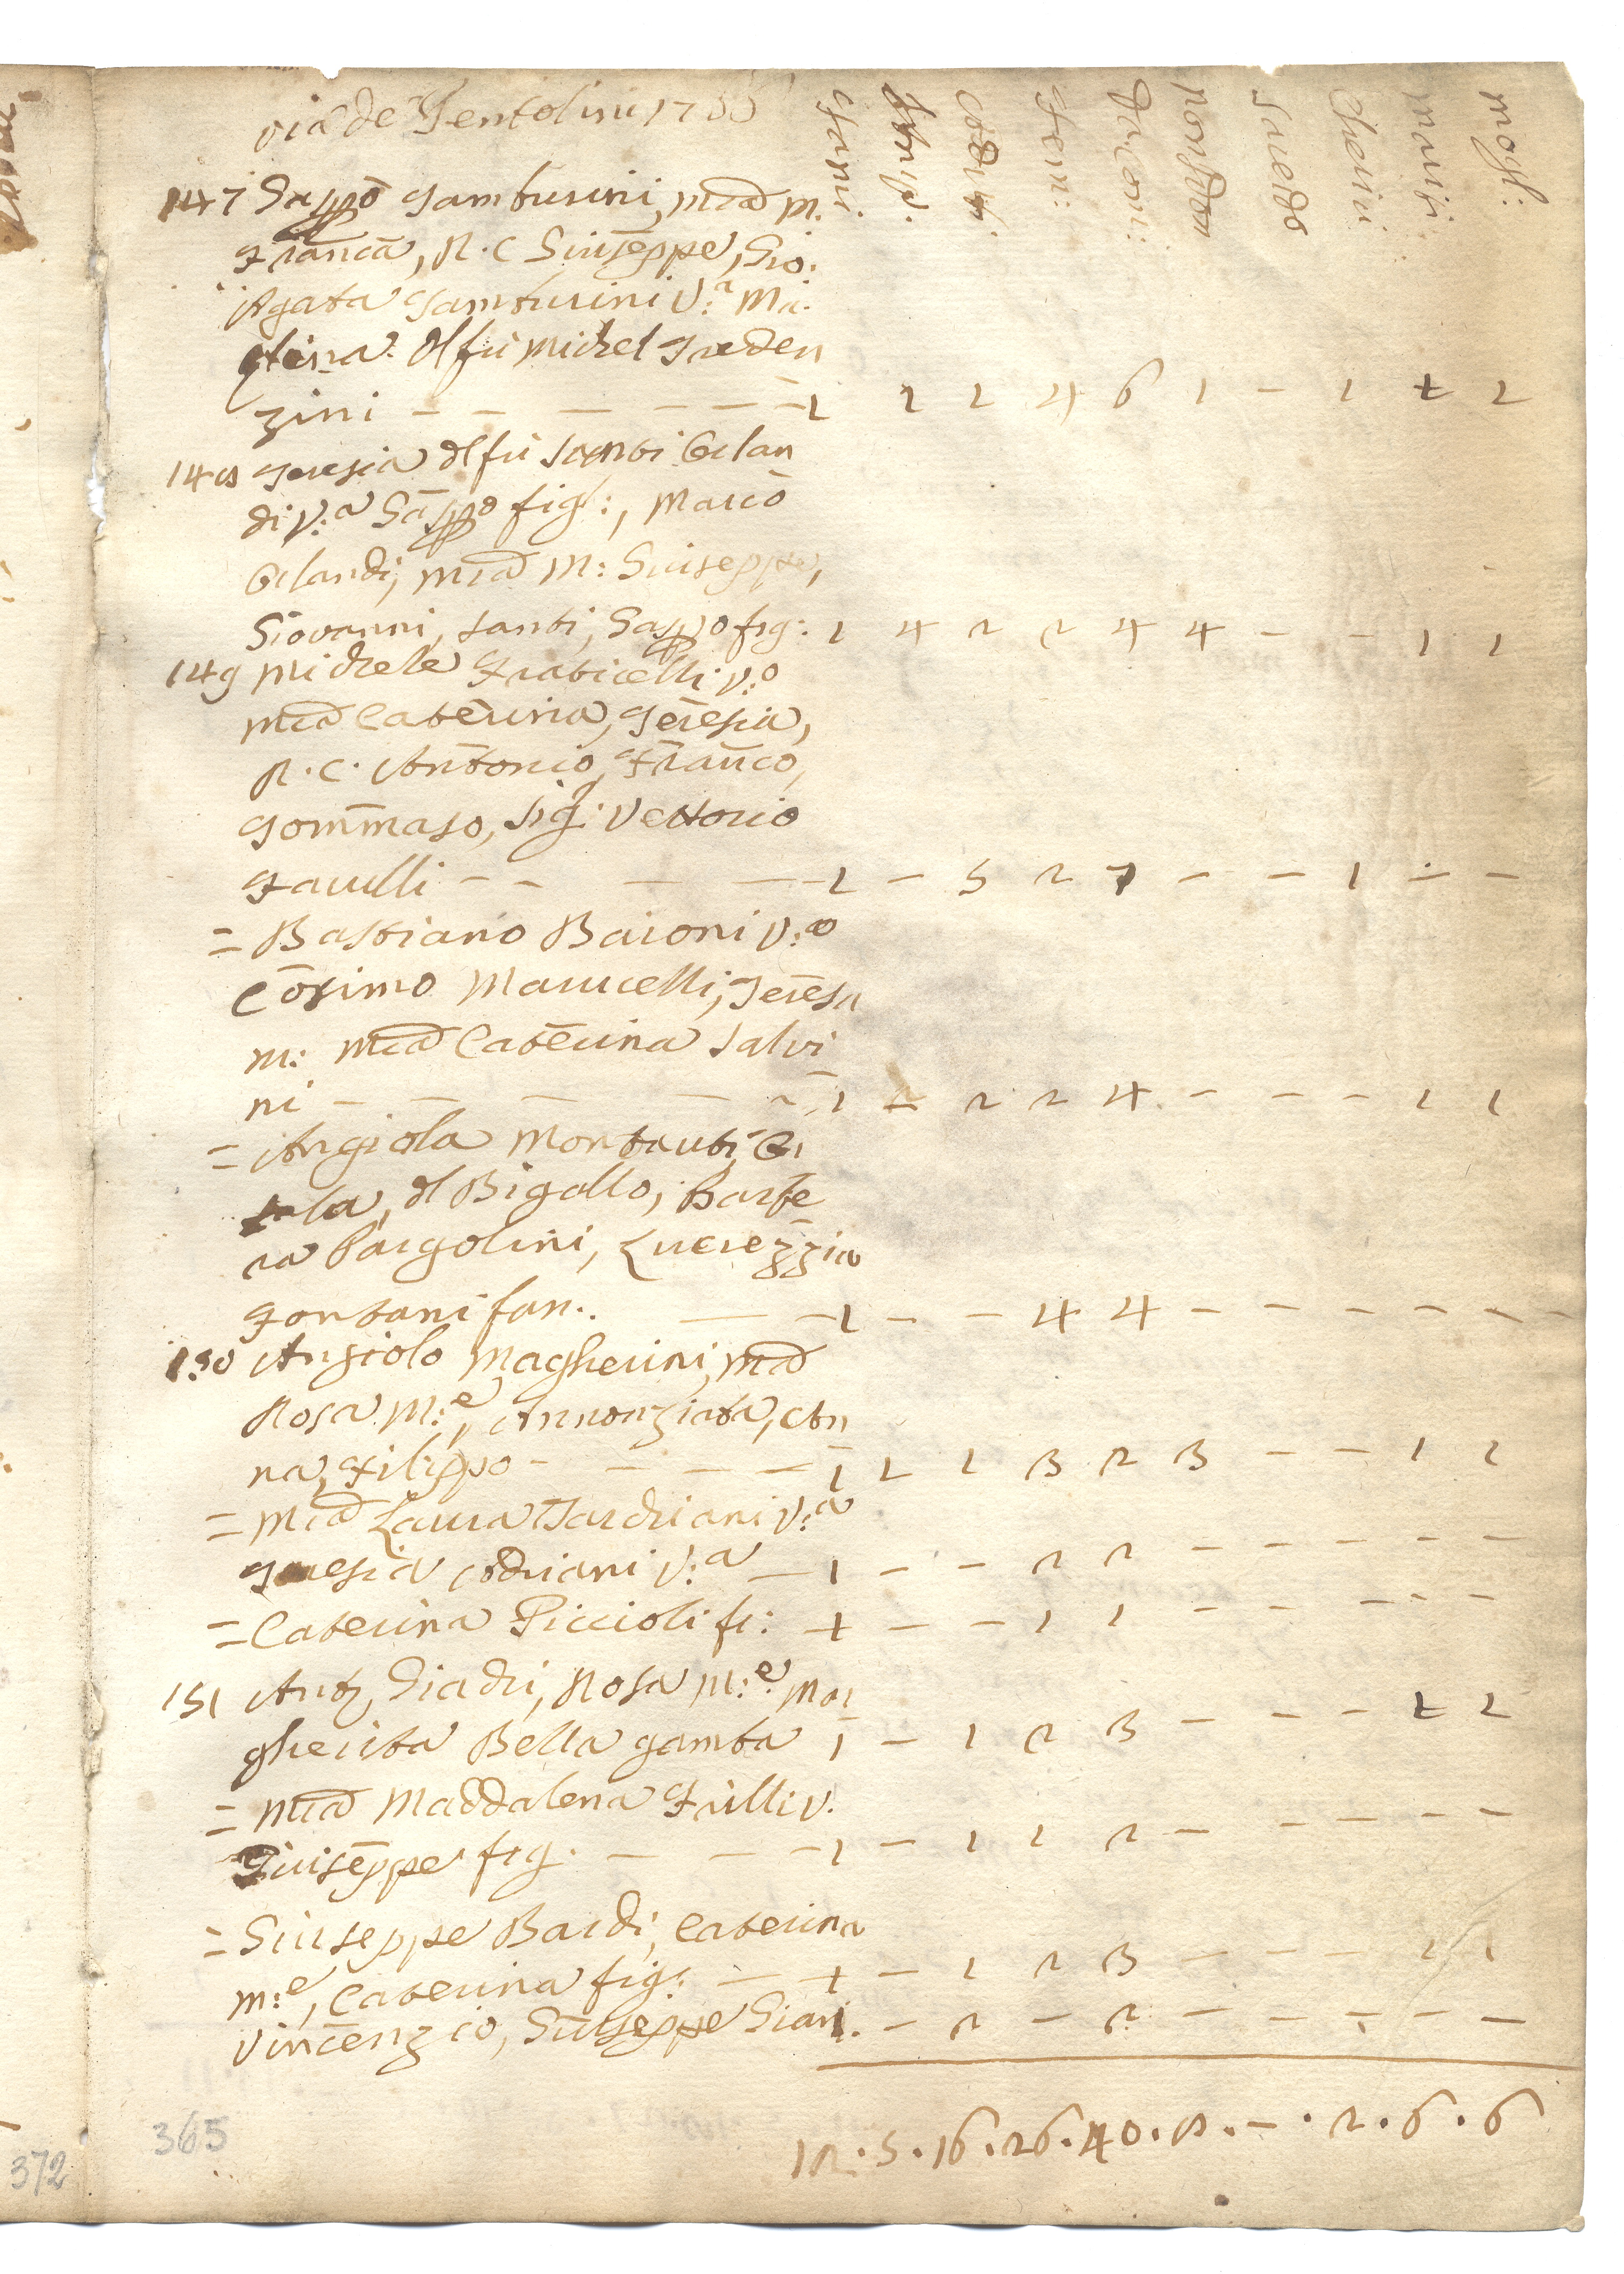 via de Pentolini 1766
Fami:
M
Cō d M
Fem:
Da Com:
non d Com
Sacedo
Cherici
mariti
mogl:
147 Gasp̄o Tamburini, M.a D.a m.
Fran̄ca, R. C Giusēppe, Gio.
Agata Tamburini V:a Ma.
stina dl fu Michel Greden
zini - - - - - - 1 2 2 4 6 1 - 1 1 1
148 Teresia dl fu Santi Orlan
di V:a Gāsp̄o figl:, Marcō
Orlandi, M.a D.a m: Giuseppe,
Giovanni, Santi, Gasp̄o fig: 1 4 2 2 4 4 - - 1 1
149 Michele Fraticelli V:o
M.a D.a Catērina, Terēsia,
R. C. Antōnio, Frañco,
Tom̄maso, sig: Vettorio
Faulli - - - - 1 - 5 2 7 - - 1 - -
= Bastiano Baroni V:o
Cōsimo Marucelli, Terēsa
m: M.a D.a Catērina Salvi
ni - - - - - 1 - 2 2 4 - - - 1 1
= Angiola Montauti, Or
sola, dl Bigallo, Barbe
ra Pargolini, Lucrezzia
Fontani fan. - - 1 - - 4 4 - - - - -
150 Angiolo Magherini, M.a D.a
Rosa m:e, Annonziata, An
na, Filippo - - - - 1 1 1 3 2 3 - - 1 1
= M.a D.a Laura V:a
Teresia V:a - 1 - - 2 2 - - - - -
= Caterina Piccioli fi: 1 - - 1 1 - - - - -
151 Ant, Rosa m:e Mar
gherita Bella gamba 1 - 1 2 3 - - - 1 1
= M.a D.a Maddalena Frilli V.
Giusēppe fig. - - - 1 - 1 1 2 - - - - -
= Giuseppe Bardi, Caterina
m:e, Caterina fig: - 1 - 1 2 3 - - - 1 1
Vincēnzio, Giuseppe Giani. 1 - 2 - 2 - - - - -
12 . 5 . 16 . 26 . 40 . 8 . - . 2 . 6 . 6
365
372